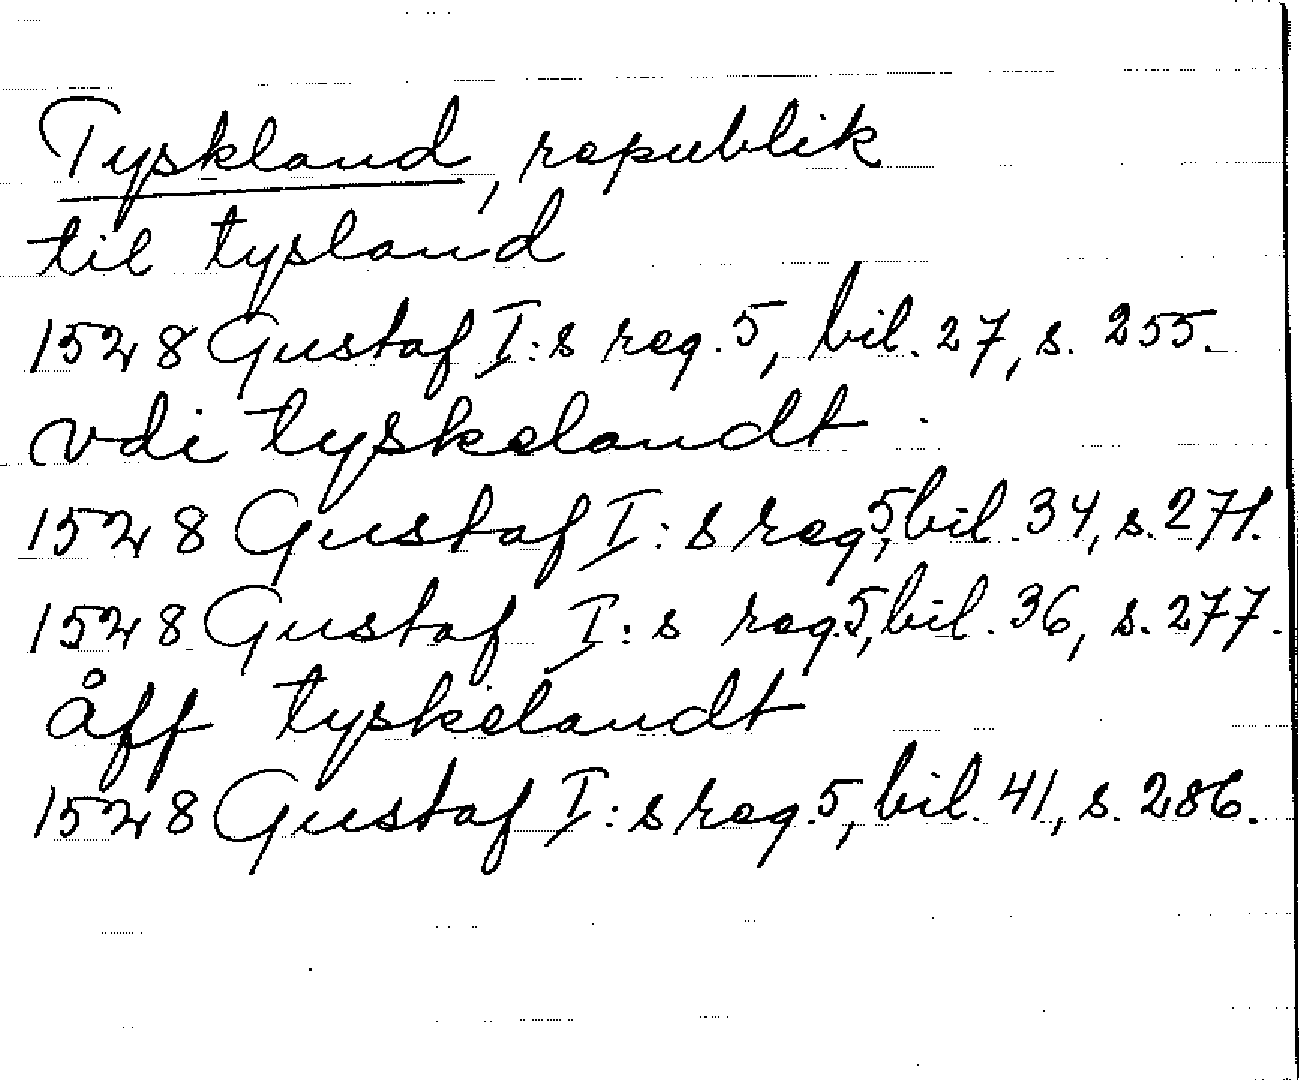 Tyskland, republik
til tysland
1528 Gustaf I:s reg. 5, bil. 27, s. 255.
vdi tyskelandt
1528 Gustaf I:s reg 5, bil. 34, s. 271.
1528 Gustaf I:s reg. 5, bil. 36, s. 277.
åff tyskelandt
1528 Gustaf I:s reg. 5, bil. 41, s. 286.